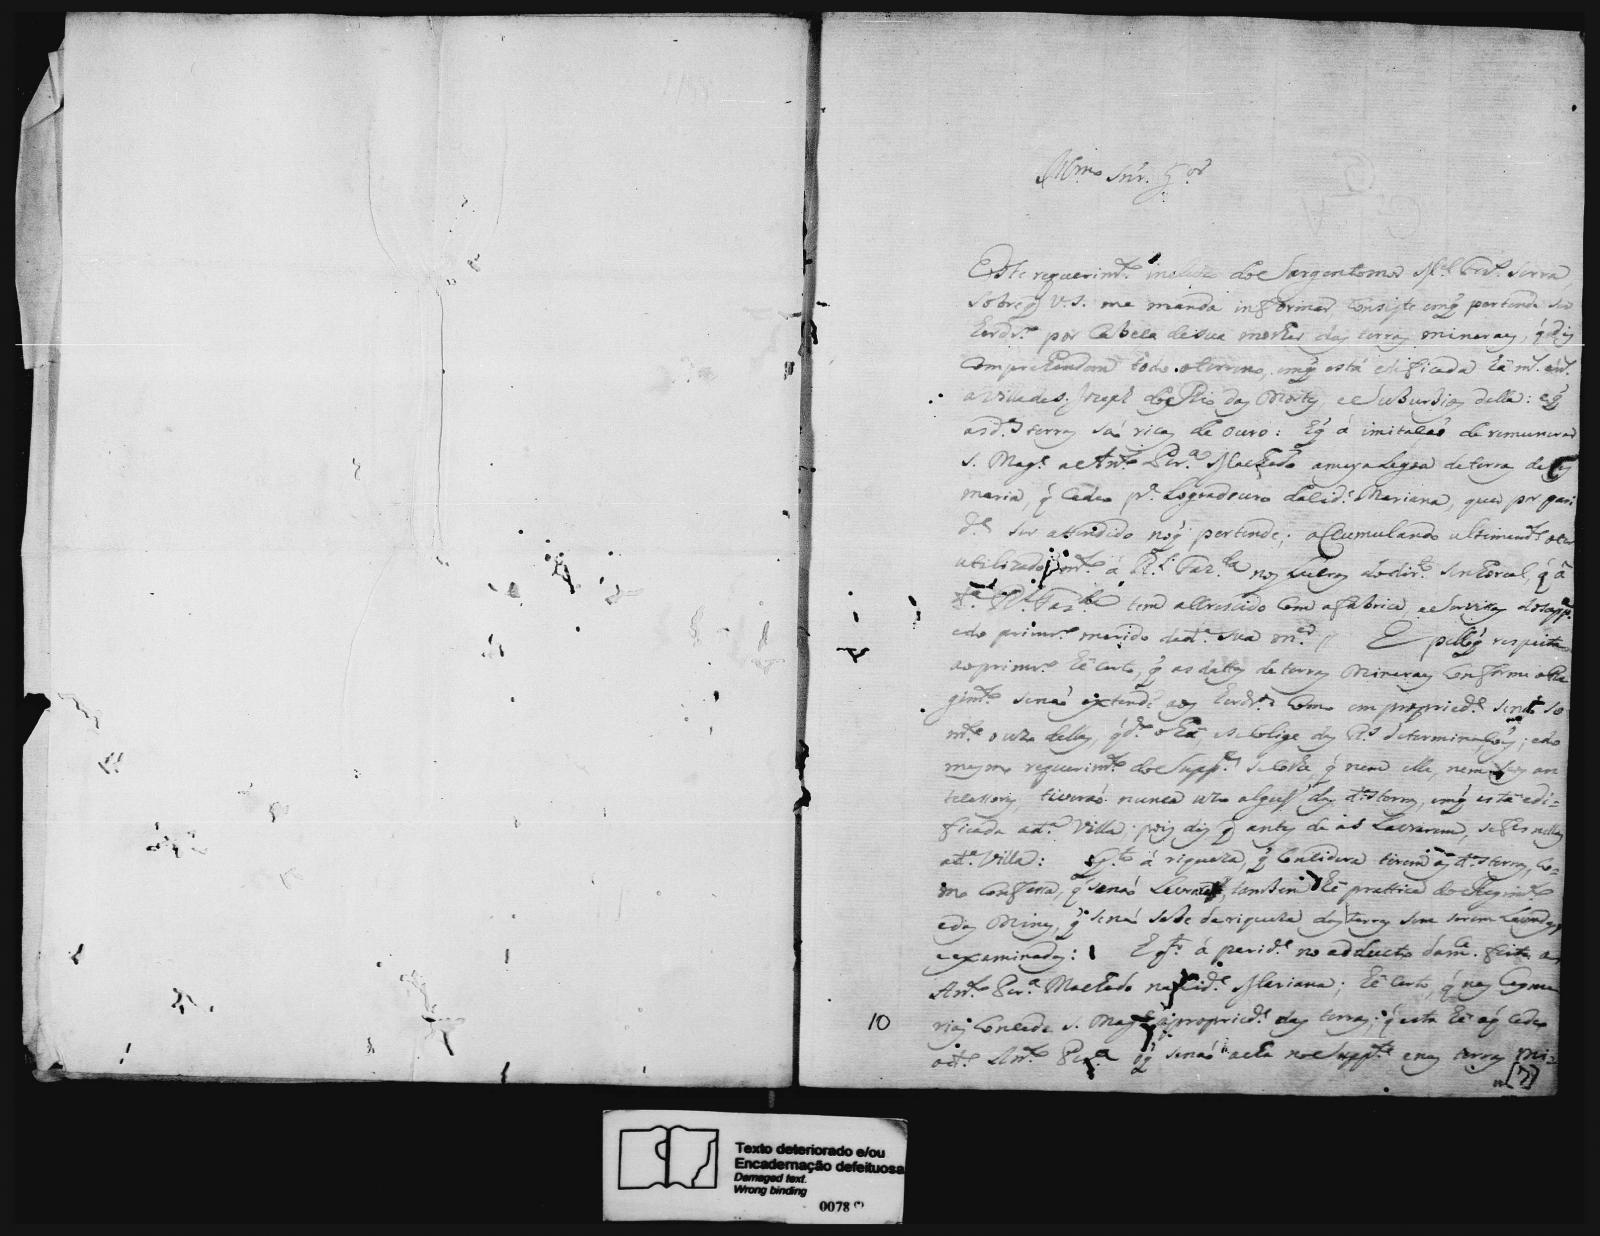 Illmo Snr. G.or
Este requerim.to incluzo do Sargentomor M.el Frz. Serra,
sobre q V. S. me manda informar, consiste em q̃ pertende ser
Erdr.o por cabeça de sua molher das terras mineraes, q̃ diz
comprehendem todo o terreno, em q̃ está edificada
a Villa de S. Jozeph do Rio das Mortes, e suburbios della: e q̃
as d.as terras são ricas de ouro: E q̃ á imitaçaõ de remunerar
S. Mag.e a Ant.o Per.a Machado a meya legoa de terra de ses
maria, q̃ cedeo p.a Logradouro da Cid.e Mariana, quer por pari
d.e ser attendido no q̃ pertende; accumulando ultimam.te o ter
utilizado á R.l Faz.da nos
R.l Faz.da tem accrescido com a fabrica, e serviços do Supp.e
e do primr.o marido da d.a sua m.er E pello q̃ respeita
ao primr.o Hé certo, q̃ as dattas de terras Mineraes conforme o Re
gim.to senaõ extende aos Erdr.os como em propried.e senaõ so
m.te o uzo dellas, das R.s determinaçoes; e do
mesmo requerim.to do Supp.e se colhe, q̃ nem elle, nem seus an
tecessores, tiveraõ nunca uzo algum das d.as terras, em q̃ está edi=
ficada a d.a Villa; pois diz q̃ antes de as Lavrarem, se fes nellas
a d.a Villa: Q.to á riqueza, q̃ considera terem as d.as terras, co=
mo confessa, q̃ senaõ Lavraraõ, tambem Hé prattica do Regim.to
e das Minas, q̃ senaõ sabe da riqueza das terras sem serem Lavradas,
e examinadas: E q.to á parid.e no adducto da m.ce feita a
Ant.o Per.a Machado na Cid.e Mariana; Hé certo, q̃ nas Cesma
rias concede S. Mag.e a propried.e das terras; q̃ esta Hé a q̃ cedeo
o d.o Ant.o Per.a o q̃ senaõ acha no Supp.e e nas terras Mi=
[7]
10
Texto deteriorado e/ou
Encadernação defeituosa
Damaged text.
Wrong binding
0078